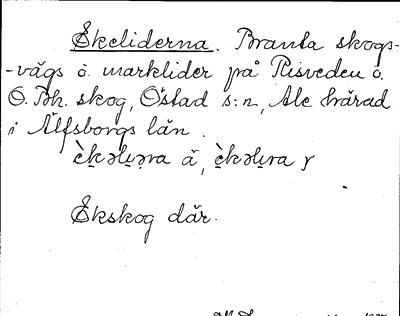 Ekeliderna. Branta skogs-
-vägs o. marklider på Risveden o.
O. Bh. skog, Östad s:n, Ale härad
i Älfsborgs län.
Ekskog där.